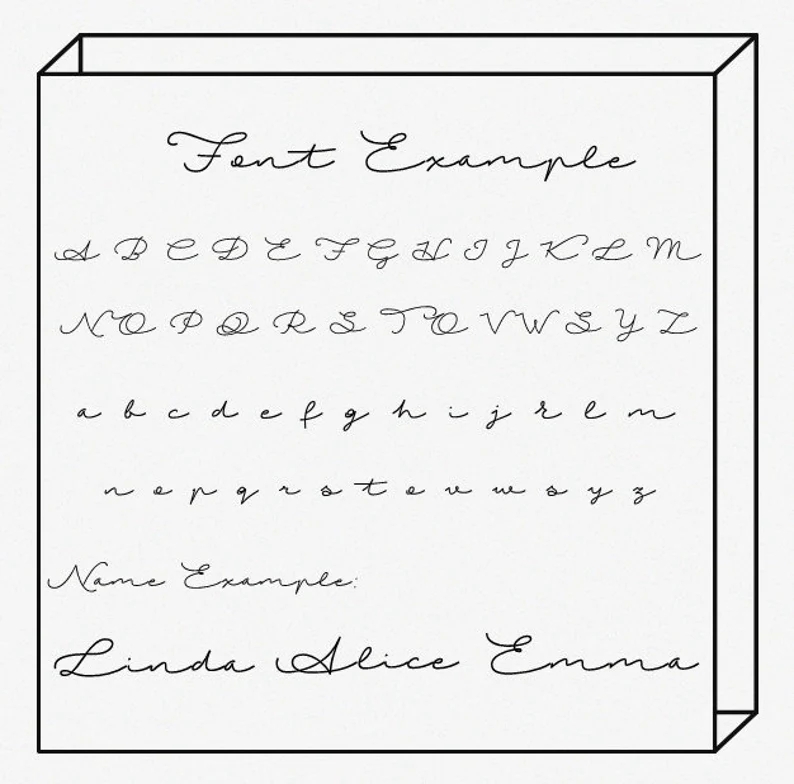 Font Example
A B C D E F G H I J K L M
N O P Q R S T O V W S Y Z
a b c d e f g h i j k l m
n o p q r s t o v w s y z
Name Example:
Linda Alice Emma